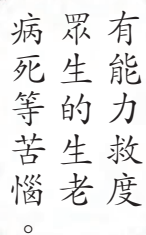 有能力救度
眾生的生老
病死等苦惱。